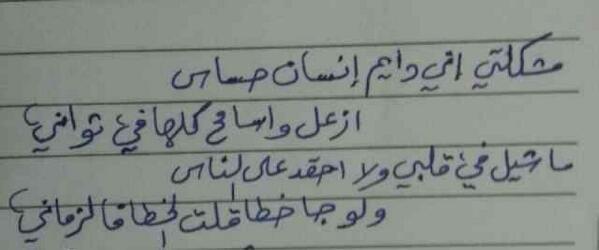 مشكلتي اني دايم إنسان حساس
ازعل واسامح كلها في ثواني
ماشيل في قلبي ولا احقد على الناس
ولو جا خطا قلت الخطا فالزماني